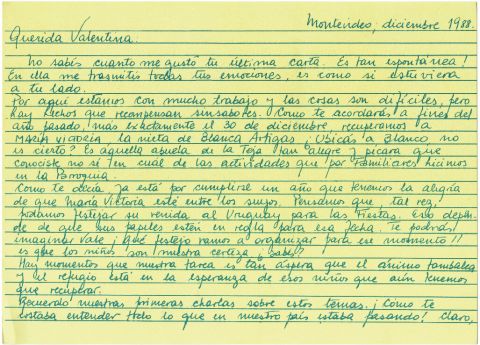 Montevideo, diciembre 1988.
Querida Valentina:
No sabés cuanto me gustó tu última carta. Es tan espontánea!
En ella me trasmitís todas tus emociones, es como si estuviera
a tu lado.
Por aquí estamos con mucho trabajo y las cosas son difíciles, pero
hay hechos que recompensan sinsabores. ¿Como te acordarás a fines del
año pasado, mas exactamente el 30 de diciembre, recuperamos a
MARIA VICTORIA la nieta de Blanca Artigas. ¿Ubicás a Blanca no
es cierto? Es aquella abuela de La Teja tan alegre y pícara que
conociste no sé en cuál de las actividades que por Familiares hicimos
en la Parroquia.
Como te decía, ya está por cumplirse un año que tenemos la alegría
de que María Victoria esté entre los suyos. Pensamos que, tal vez,
podamos festejar su venida al Uruguay para las Fiestas. Eso depen-
de de que sus papeles estén en regla para esa fecha. Te podrás
imaginar Vale ¡Qué festejo vamos a organizar para ese momento!!
es que los niños son nuestra certeza ¿sabés?
Hay momentos que nuestra tarea es tan áspera que el ánimo tambalea
y el refugio está en la esperanza de esos niños que aún tenemos
que recuperar.
Recuerdo nuestras primeras charlas sobre estos temas. ¡Cómo te
costaba entender todo lo que en nuestro país estaba pasando! Claro,